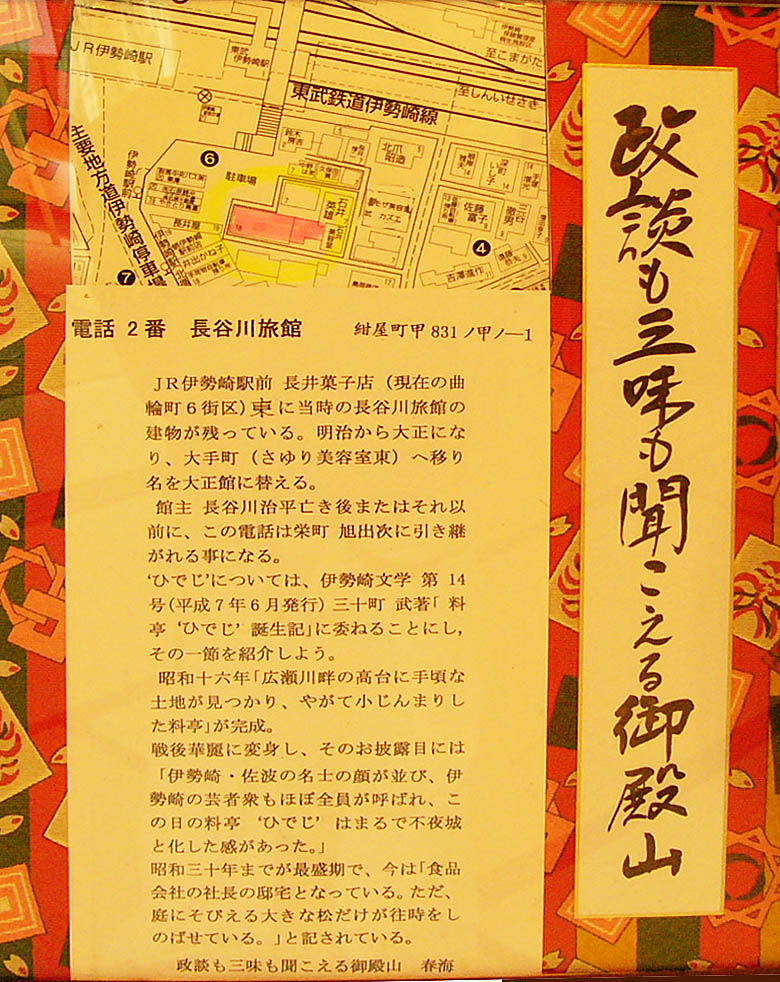 政談も三味も聞こえる御殿山
JR伊勢崎駅
東武
伊勢崎駅
至こまがた
至しんいせさき
東武鉄道伊勢崎線
主要地方道伊勢崎停車場
伊勢崎駅前
駐車場
6
7
4
鈴木
房吉
北爪
昭造
石井
英雄
佐藤
富子
三石
徹男
吉澤進作
長井屋
井出かね子
電話 2番 長谷川旅館 紺屋町甲 831 ノ甲ノ―1
JR伊勢崎駅前 長井菓子店（現在の曲
輪町6街区）東に当時の長谷川旅館の
建物が残っている。明治から大正にな
り、大手町（さゆり美容室東）へ移り
名を大正館に替える。
館主 長谷川治平亡き後またはそれ以
前に、この電話は栄町 旭出次に引き継
がれる事になる。
‘ひでじ’については、伊勢崎文学 第 14
号(平成7年6月発行) 三十町 武著「 料
亭 ‘ひでじ’ 誕生記」に委ねることにし,
その一節を紹介しよう。
昭和十六年「広瀬川畔の高台に手頃な
土地が見つかり、やがて小じんまりし
た料亭」が完成。
戦後華麗に変身し、そのお披露目には
「伊勢崎・佐波の名士の顔が並び、伊
勢崎の芸者衆もほぼ全員が呼ばれ、こ
の日の料亭 ‘ひでじ’ はまるで不夜城
と化した感があった。」
昭和三十年までが最盛期で、今は「食品
会社の社長の邸宅となっている。ただ、
庭にそびえる大きな松だけが往時をし
のばせている。」と記されている。
政談も三味も聞こえる御殿山 春海